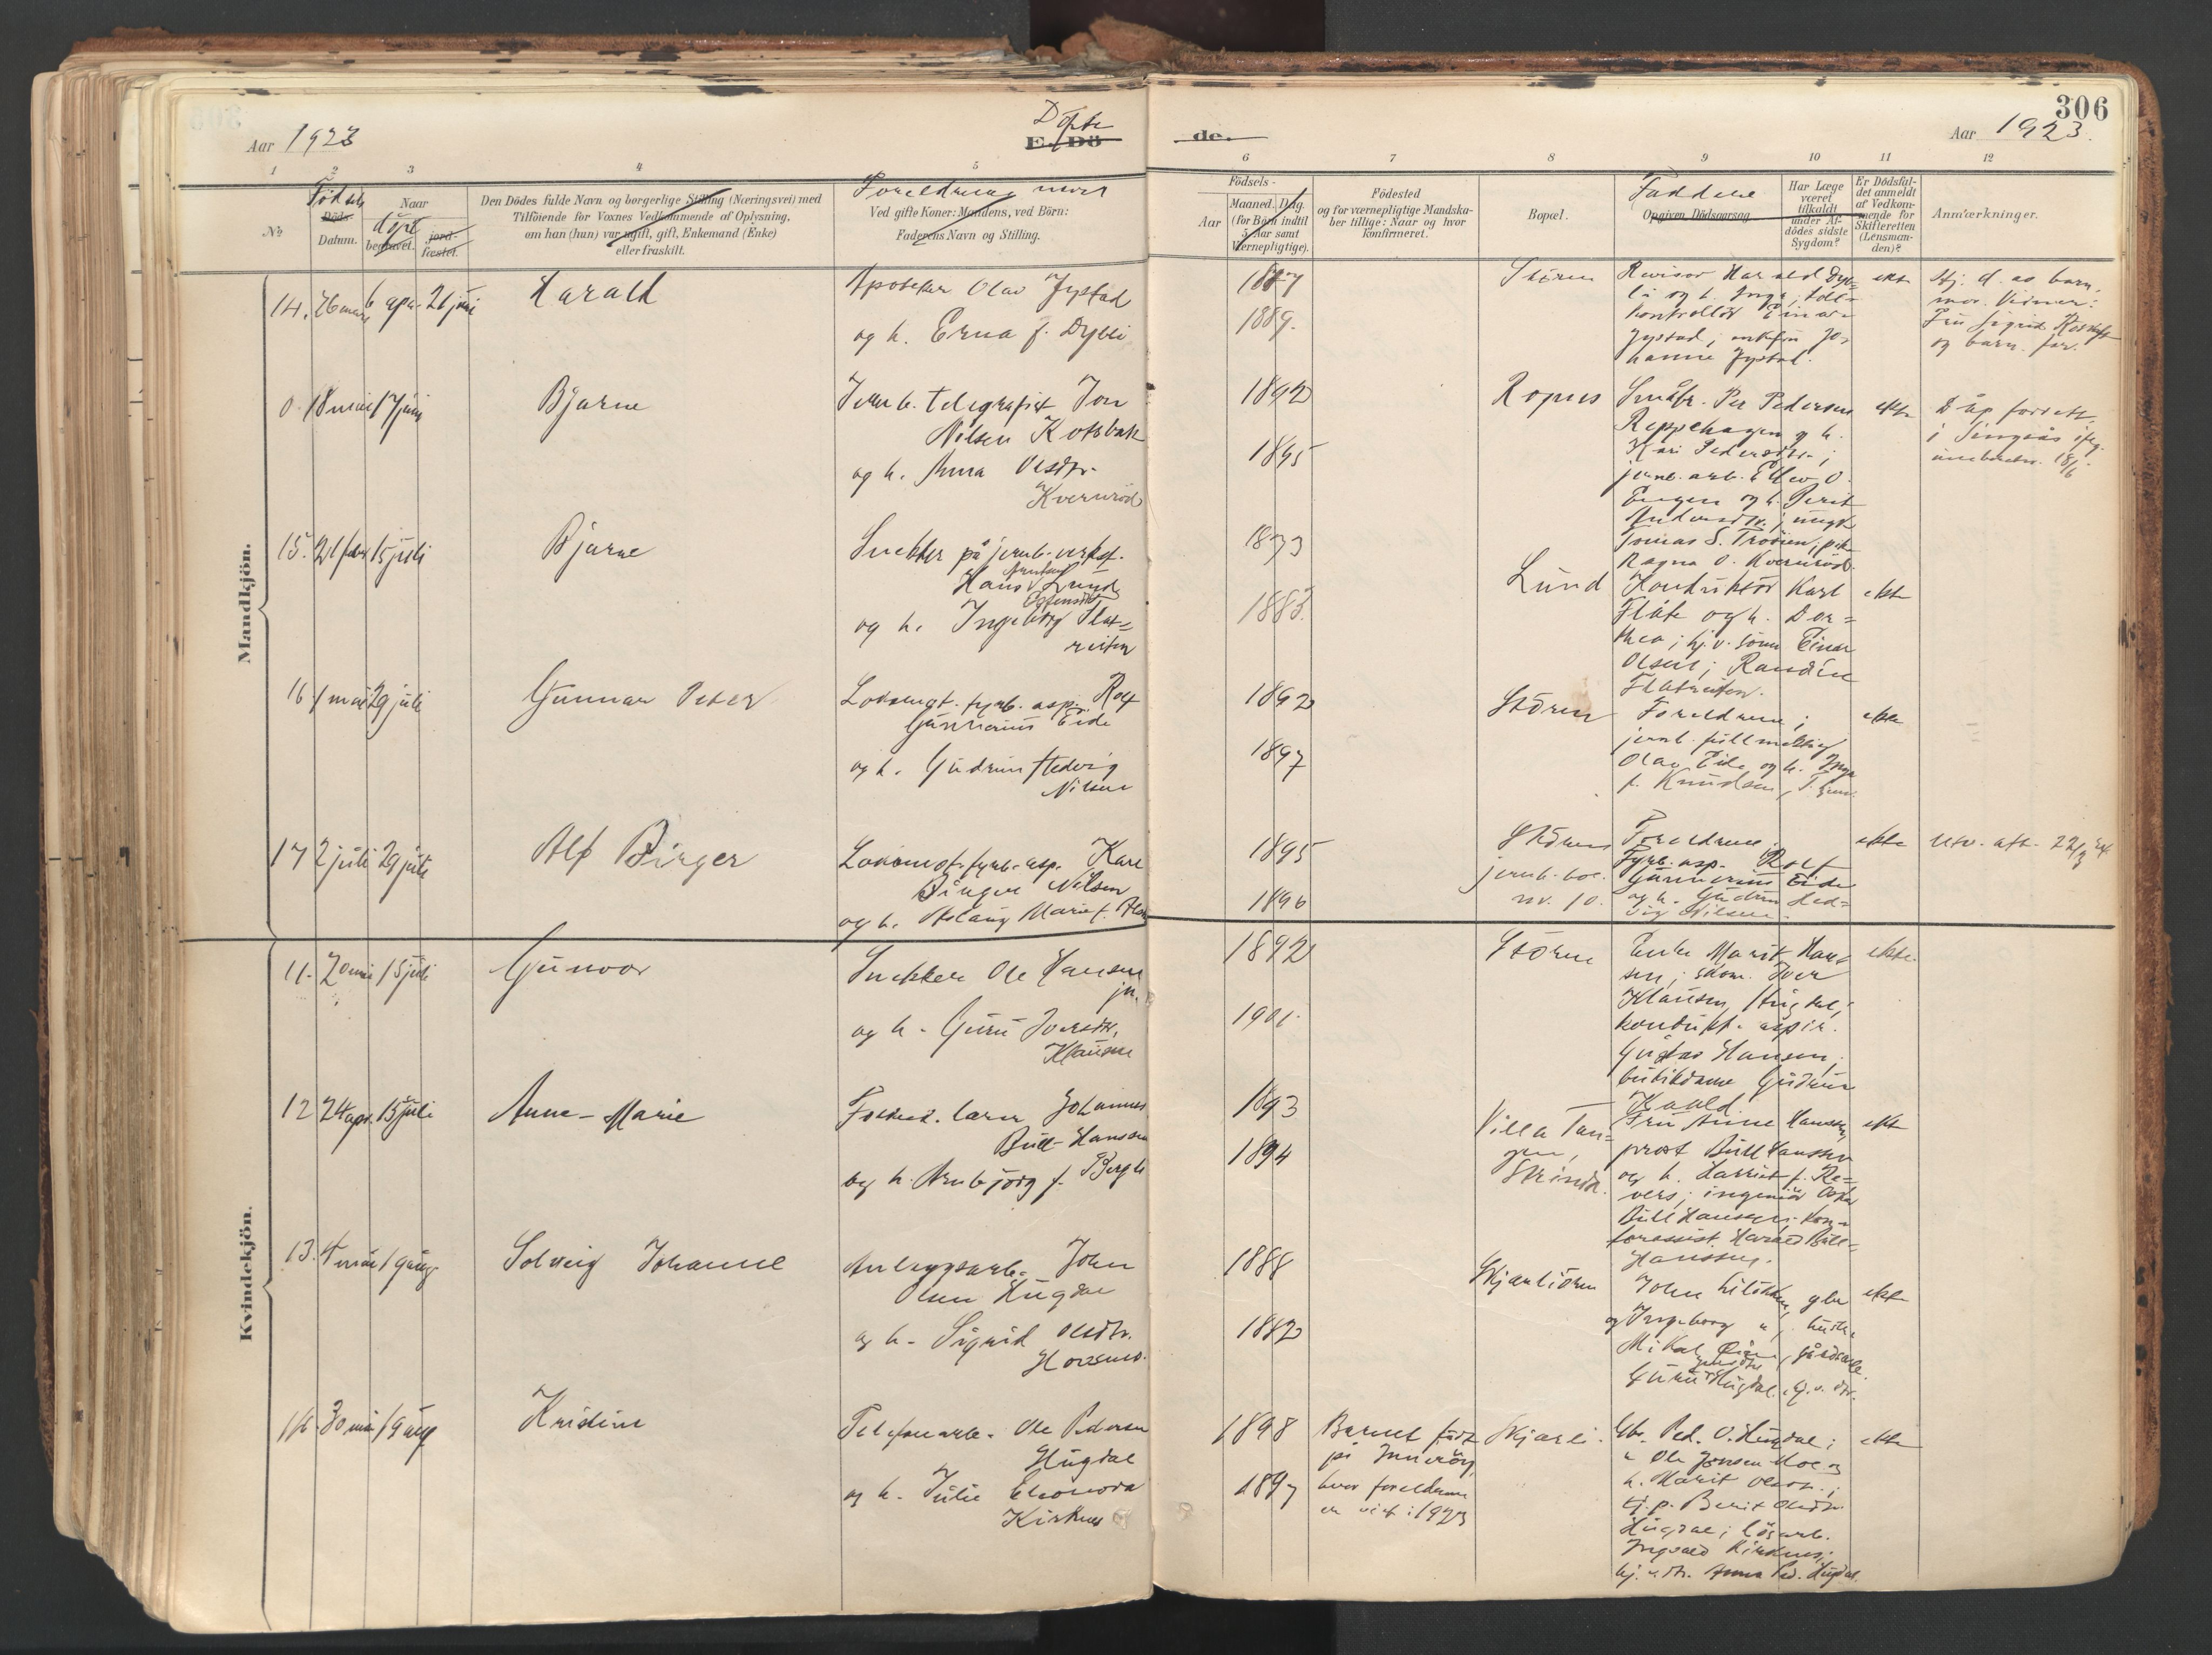 306
Aar 1923
Döpte
E. Dö
de.
Aar 1923.
1 2 3 4 5 6 7 8 9 10 11 12
No
Fødsels
Døds-
Datum.
Naar
döpt
begravet.
jord-
fæstet.
Den Dödes fulde Navn og borgerlige Stilling (Næringsvei) med
Tilföiende for Voxnes Vedkommende af Oplysning,
om han (hun) var ugift, gift, Enkemand (Enke)
eller fraskilt.
Foreldrenes navn
Ved gifte Koner: Mandens, ved Börn:
Faderens Navn og Stilling.
Födsels-
Aar
Maaned. Dag.
(for Börn indtil
5 Aar samt
Værnepligtige).
Födested
og for værnepligtige Mandska-
ber tillige: Naar og hvor
konfirmeret.
Bopæl.
Faddere
Opgiven Dödsaarsag.
Har Læge
været
tilkaldt
under Af-
dödes sidste
Sygdom?
Er Dödsfal-
det anmeldt
af Vedkom-
mende for
Skifteretten
(Lensman-
den)?
Anmærkninger.
Mandkjön.
14. 26 mars 6 apr. 21 juni
Harald
Apoteker Olav Jystad
og h. Erna f. Dybli
1887
1889.
Stören
Revisor Harald Dyb-
li og h. Inga; toll-
kontrollör Einar
Jystad; enkefru Jo-
hanne Jystad.
ekte
Hj. d. av barn.
mor. Vidner:
Fru Sigrid
og barn. far.
0. 18 mai 17 juni
Bjarne
Jernb. telegrafist Jon
Nilsen Kotsbak
og h. Anna Olsdtr.
Kvernröd
1892
1895
Rognes
Småbr. Per Pedersen
Reppehagen og h.
Kari Pedersdtr.;
jernb. arb. Ellev O.
Engen og h. Berit
Andersdtr.; ungk.
Tomas S. Troöien; pike
Ragna O. Kvernröd.
ekte
Dåp forrett.
i Singsås ifg.
innberetn. 18/6
15. 21 febr 15 juli
Bjarne
Snekker på jernb.-verkst.
Hans Arntsen Lund
og h. Ingeborg Estensdtr Flat-
reiten
1873
1883.
Lund
Konduktör Karl
Flåte og h. Dor-
thea; hj. v. sönn Einar
Olsen; Randine
Flatreiten.
ekte
16 1 mai 29 juli
Gunnar Peter
Lokomot. fyrb. asp. Rolf
Gunnerius Eide
og h. Gudrun Hedvig
Nilsen
1892
1897
Stören
Foreldrene;
jernb. fullmektig
Olav Eide og h. Inga
f. Knudsen, T.hjem.
ekte
17 2 juli 29 juli
Alf Birger
Lokomot. fyrb. asp. Karl
Birger Nilsen
og h. Aslaug Marie f.
1895
1896
Stören
jernb. bol.
nr. 10.
Foreldrene;
Fyrb. asp. Rolf
Gunnerius Eide
og h. Gudrun Hed-
vig Nilsen.
ekte
Utv. att. 22/3 24.
Kvindekjön.
11. 20 mai 15 juli
Gunvor
Snekker Ole Hansen
jr.
og h. Guru Iversdtr.
Klausen
1892
1901.
Stören
Enke Marit Han-
sen; skom. Iver
Klausen Hugdal;
kondukt. aspir.
Gustav Hansen;
butikdame Gudrun
Kvald.
ekte.
12 24 apr. 15 juli
Anne-Marie
Forsöks. lærer Johannes
Bull-Hanssen
og h. Arnbjörg f. Bergh
1893
1894
Villa Tan-
gen,
Strinda.
Fru Anne Hanssen,
prost Bull Hanssen
og h. Harriet f. Re-
vers; ingeniör Oskar
Bull Hanssen; Kon-
torassist. Harald Bull-
Hanssen.
ekte
13. 4 mai 19 aug.
Solveig Johanne
Anleggsarb. John
Olsen Hugdal
og h. Sigrid Olsdtr.
Horsmo.
1888
1882
Skjarliöien
John Liløkken, gbr
og Ingeborg u.j. hustru
Mikal Öien, gårdarb.
Guru Jensdtr Hugdal. hj. v. dtr.
ekte
14. 30 mai 19 aug
Kristine
Telefonarb. Ole Pedersen
Hugdal
og h. Julie Eleonora
Kirknes
1898
1897
Barnet född
på Inneröy,
hvor foreldrene
er viet i 1923
Skjarli.
Gbr. Ped. O. Hugdal;
" Ole Jensen Moe og
h. Marit Olsdtr.;
tj.p. Berit Olsdtr.
Hugdal; lösarb.
Ingvald Kirknes;
hj. v. dtr. Anna Ped. Hugdal.
ekte